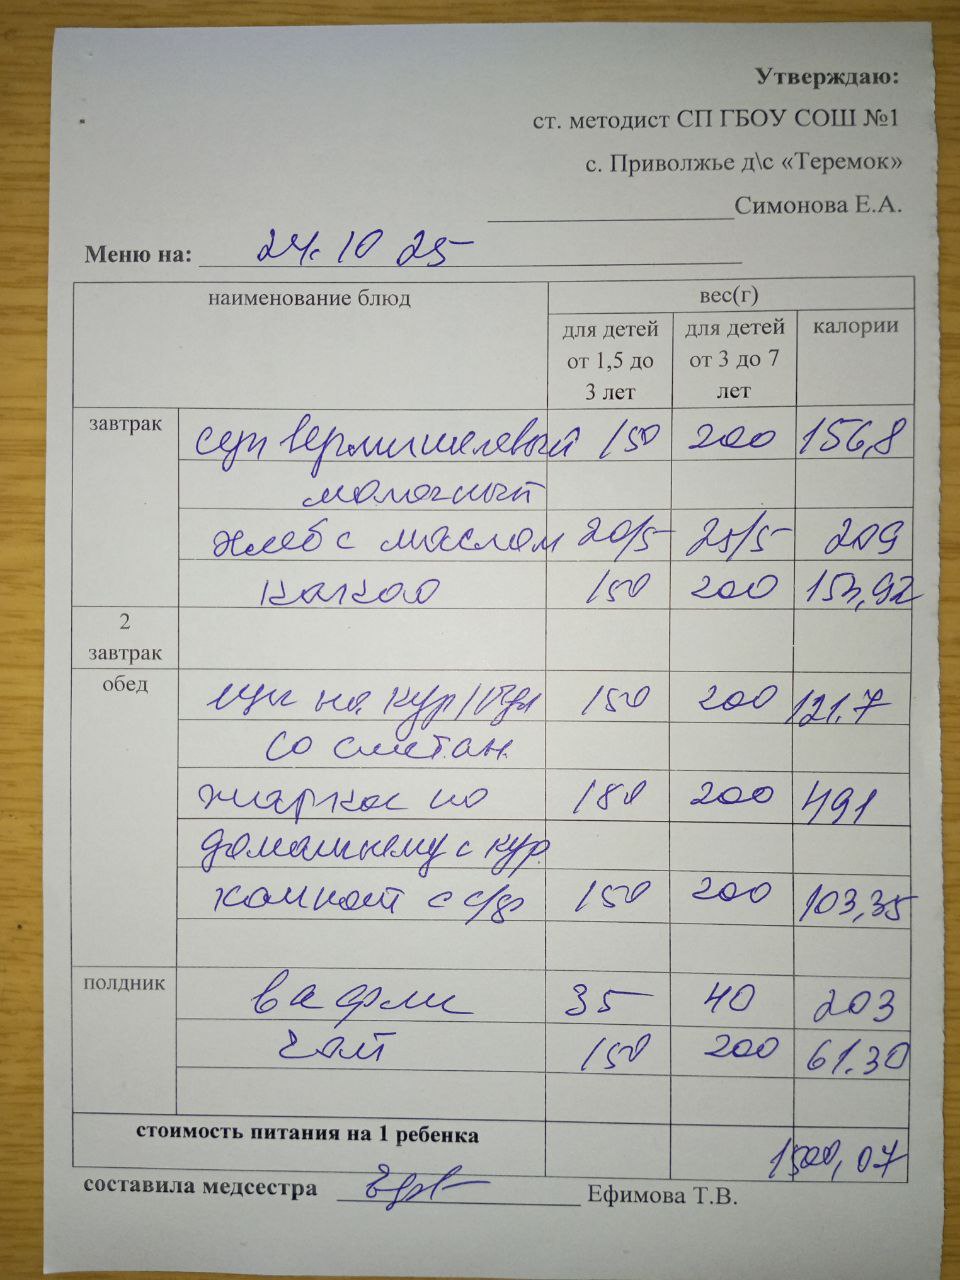 Утверждаю:
ст. методист СП ГБОУ СОШ №1
с. Приволжье д\с «Теремок»
Симонова Е.А.
Меню на: 24.10 25
наименование блюд вес(г)
для детей от 1,5 до 3 лет для детей от 3 до 7 лет калории
завтрак суп вермишелевый 150 200 156,8
молочный
хлеб с маслом 20/5 25/5 209
какао 150 200 153,92
2 завтрак
обед щи на кур/бул 150 200 121.7
со сметан.
жаркое по 180 200 491
домашнему с кур.
компот с с/ф 150 200 103,35
полдник вафли 35 40 203
чай 150 200 61.30
стоимость питания на 1 ребенка 1500,07
составила медсестра Ефимова Т.В.